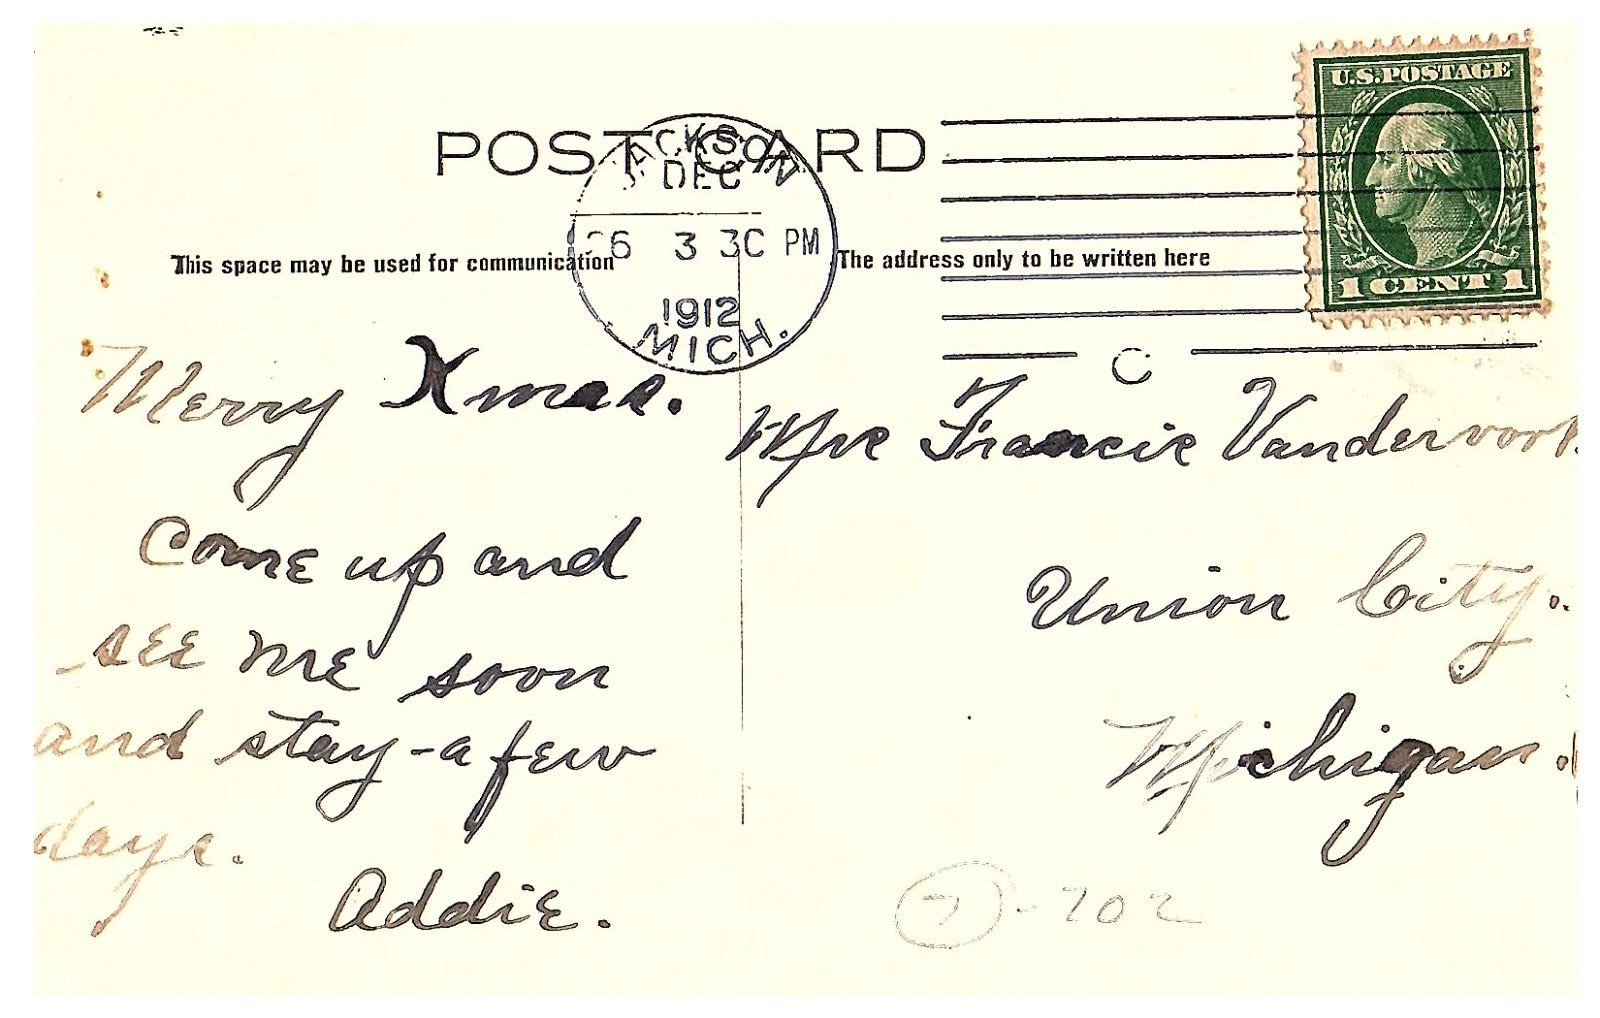 POST CARD
JACKSON
DEC
26 3 30 PM
1912
MICH.
C
U.S. POSTAGE
1 CENT 1
This space may be used for communication
The address only to be written here
Merry Xmas.
Come up and
see me soon
and stay-a few
days.
Addie.
Mrs Francis Vandervort.
Union City.
Michigan.
7-702